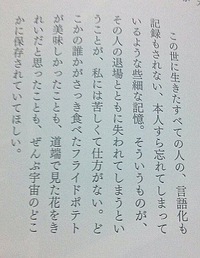 この世に生きたすべての人の、言語化も
記録もされない、本人すら忘れてしまって
いるような些細な記憶。そういうものが、
その人の退場とともに失われてしまうとい
うことが、私には苦しくて仕方がない。ど
こかの誰かがさっき食べたフライドポテト
が美味しかったことも、道端で見た花をき
れいだと思ったことも、ぜんぶ宇宙のどこ
かに保存されていてほしい。